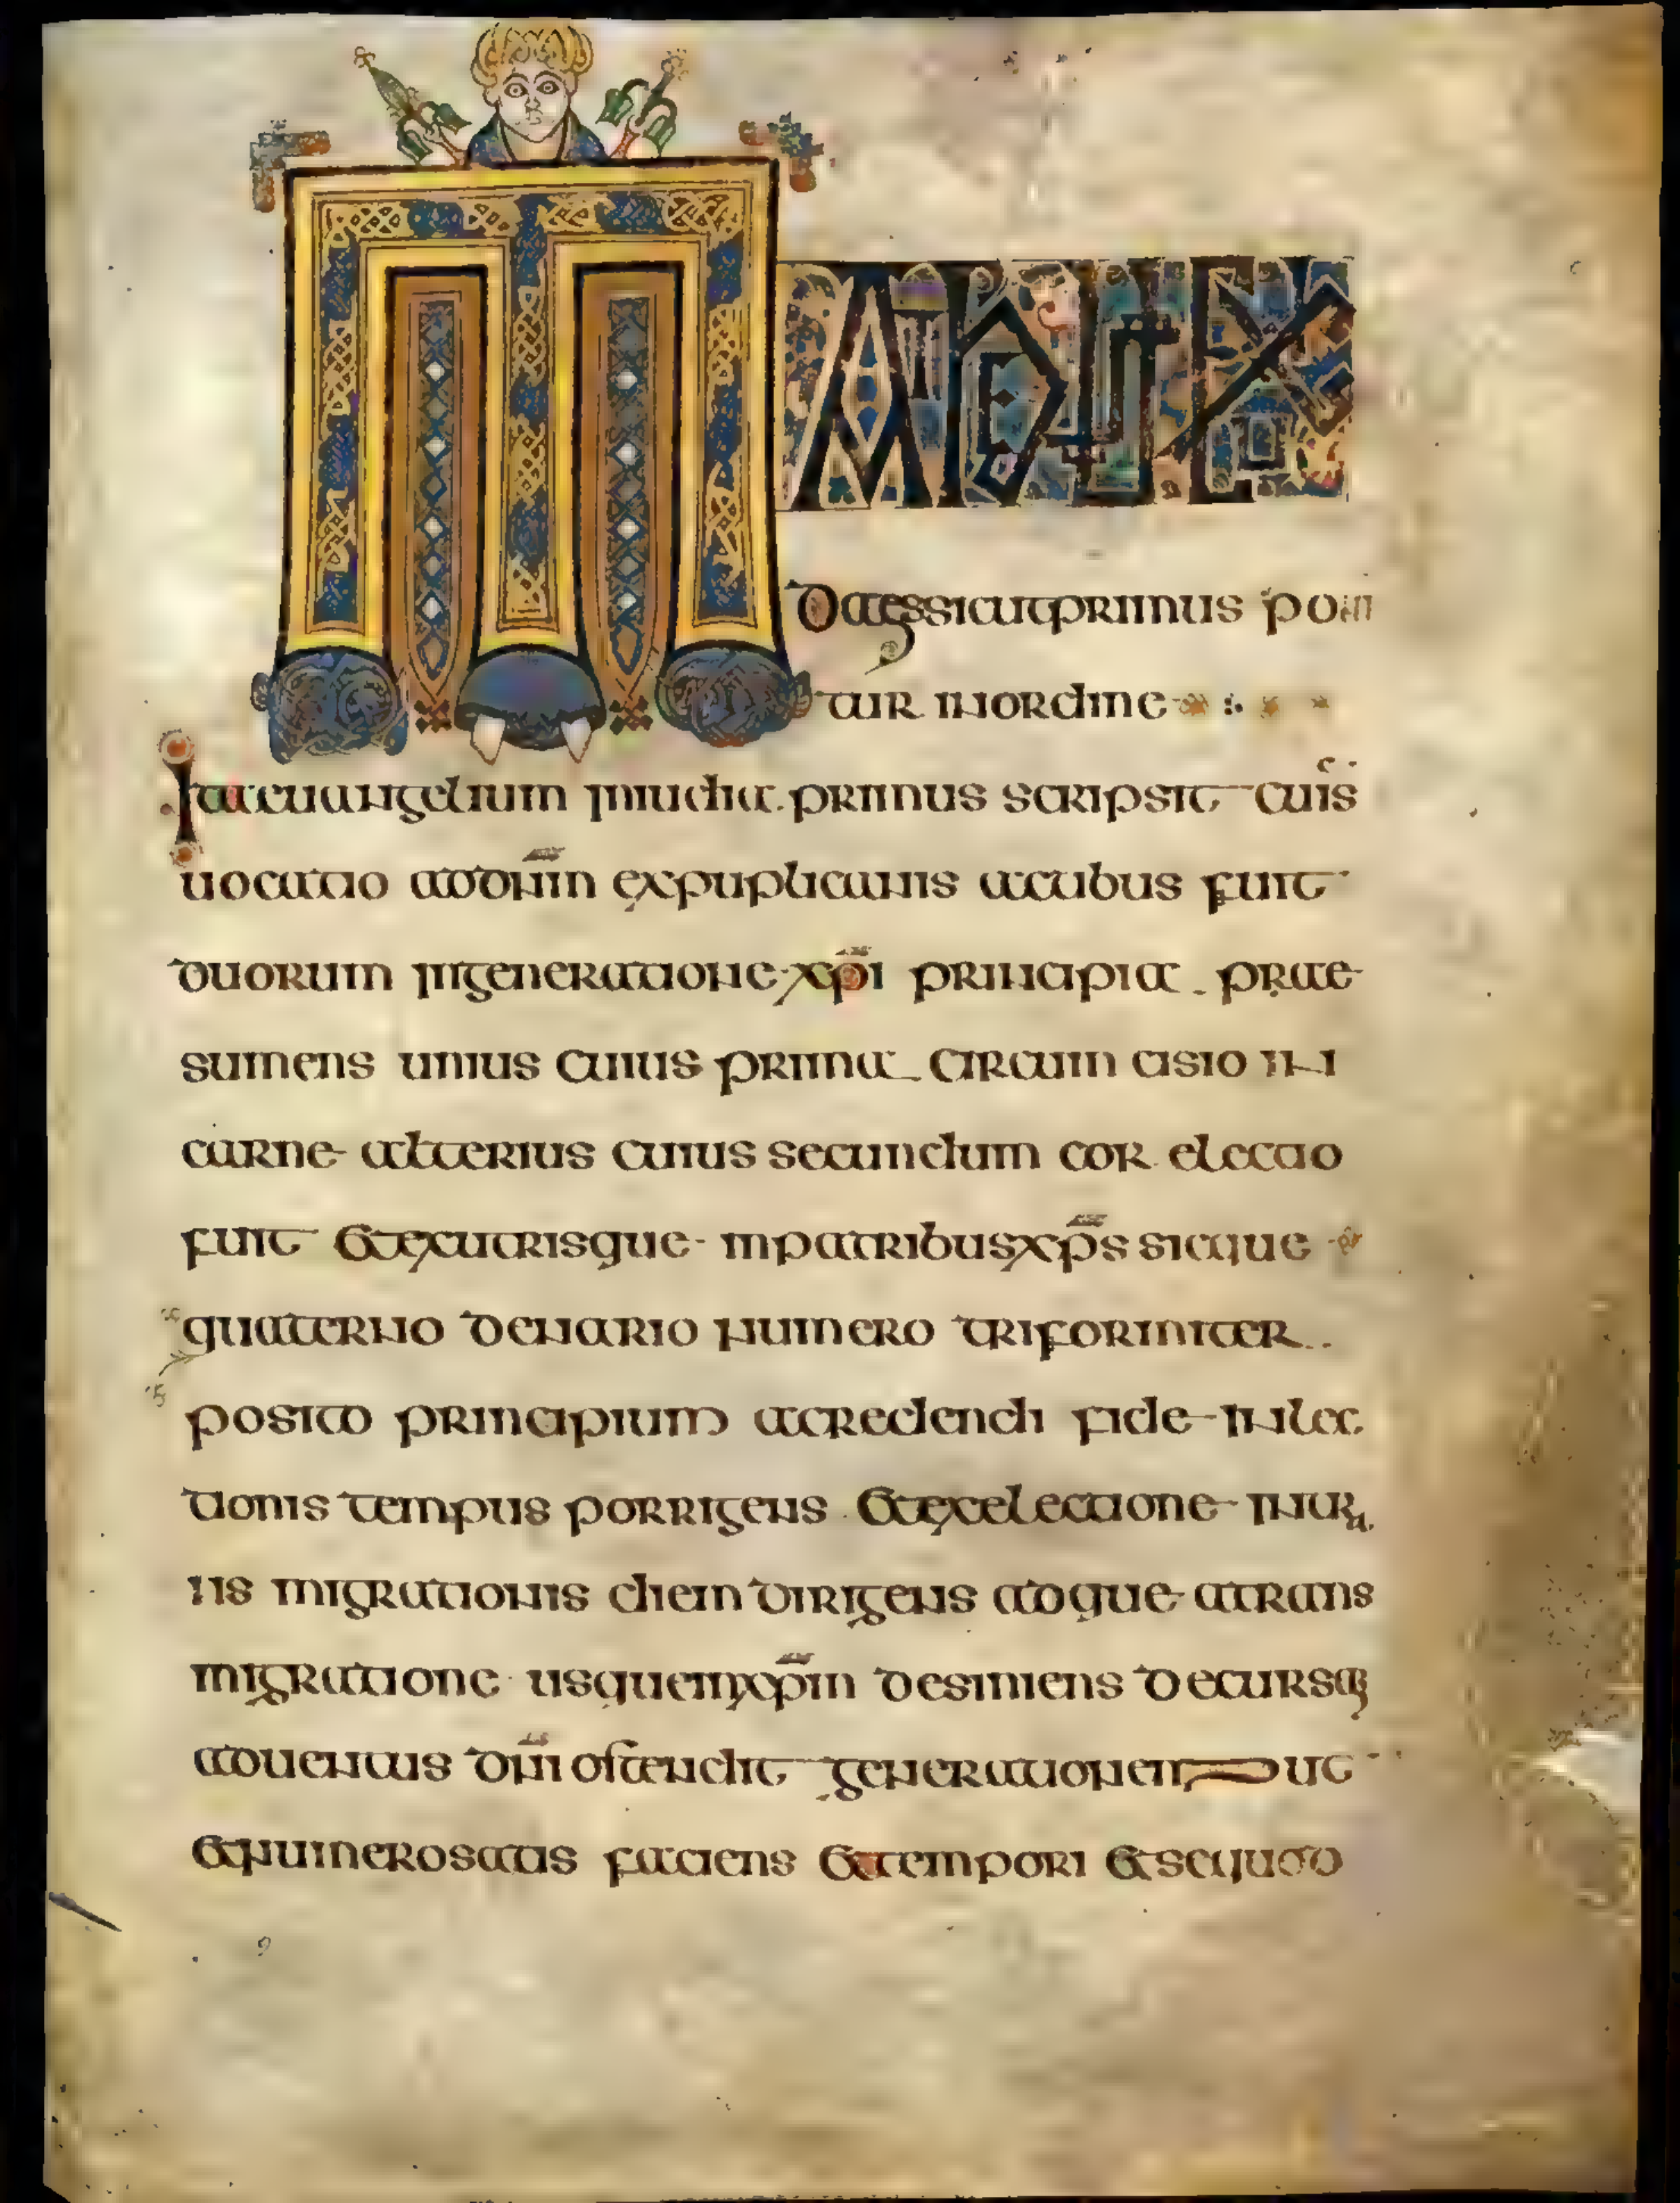 MATHEUS EX IU
DAEA SICUT PRIMUS PONI
TUR IN ORDINE
ITA EUANGELIUM IN IUDEA PRIMUS SCRIPSIT CUIS
UOCATIO AD DN̄M EX PUPLICANIS ACTIBUS FUIT
DUORUM IN GENERATIONE XP̄I PRINCIPIA PRAE
SUMENS UNIUS CUIUS PRIMA CIRCUM CISIO IN
CARNE ALTERIUS CUIUS SECUNDUM COR ELECTIO
FUIT ET EX UTRISQUE IN PATRIBUS XP̄S SICQUE
QUATERNO DENARIO NUMERO TRIFORMITER
POSITO PRINCIPIUM A CREDENDI FIDE IN ELEC
TIONIS TEMPUS PORRIGENS ET EX ELECTIONE IN
NIS MIGRATIONIS DIEM DIRIGENS ADQUE A TRANS
MIGRATIONE USQUE IN XP̄M DESINIENS DECURSAM
ADUENTUS DN̄I OSTENDIT GENERATIONEM UT
ET NUMERO SATIS FACIENS ET TEMPORI ET SE QUOD